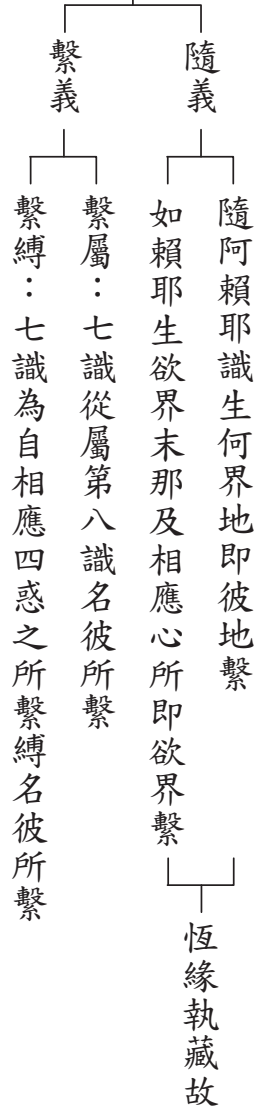 隨義
隨阿賴耶識生何界地即彼地繫
如賴耶生欲界末那及相應心所即欲界繫
恆緣執藏故
繫義
繫屬：七識從屬第八識名彼所繫
繫縛：七識為自相應四惑之所繫縛名彼所繫